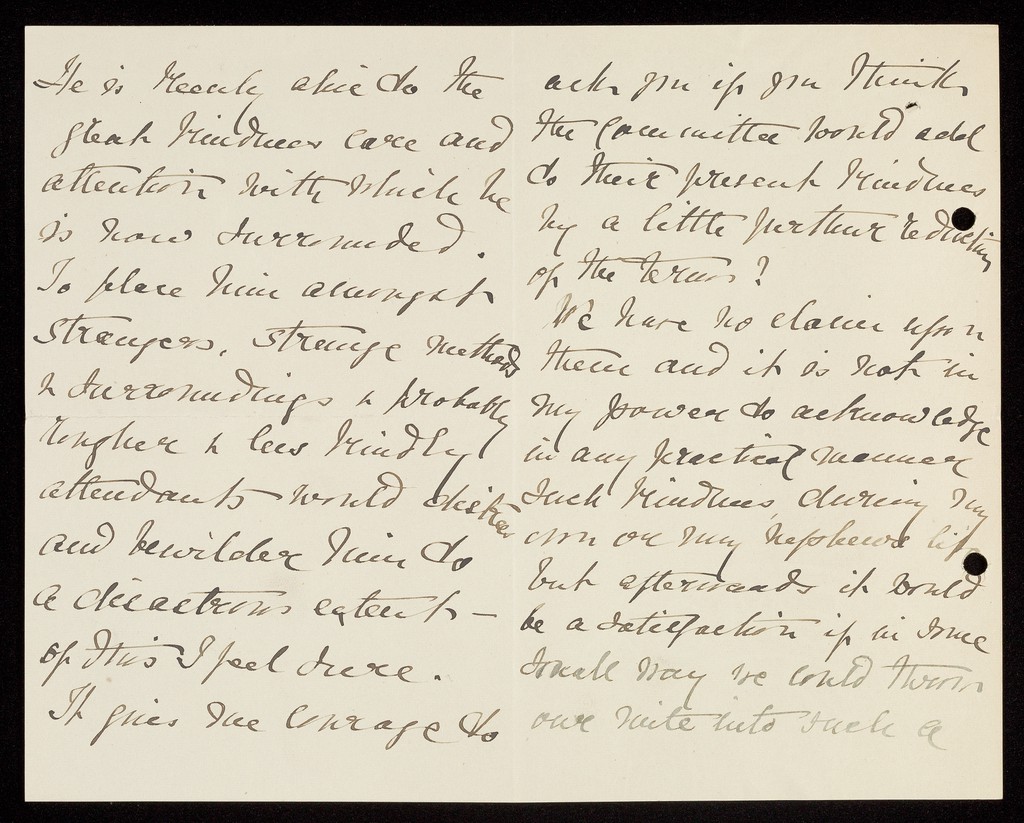 He is keenly alive to the
great kindness care and
attention with which he
is now surrounded.
To place him amongst
strangers, strange methods
& surroundings & probably
rougher & less kindly
attendants would distress
and bewilder him to
a disastrous extent –
of this I feel sure.
It gives me courage to
ask you if you think
the Committee would add
to their present kindness
by a little further reduction
of the terms?
We have no claim upon
them and it is not in
my power to acknowledge
in any practical manner
such kindness, during my
own or my nephews life
but afterwards it would
be a satisfaction if in some
small way we could throw
our mite into such a